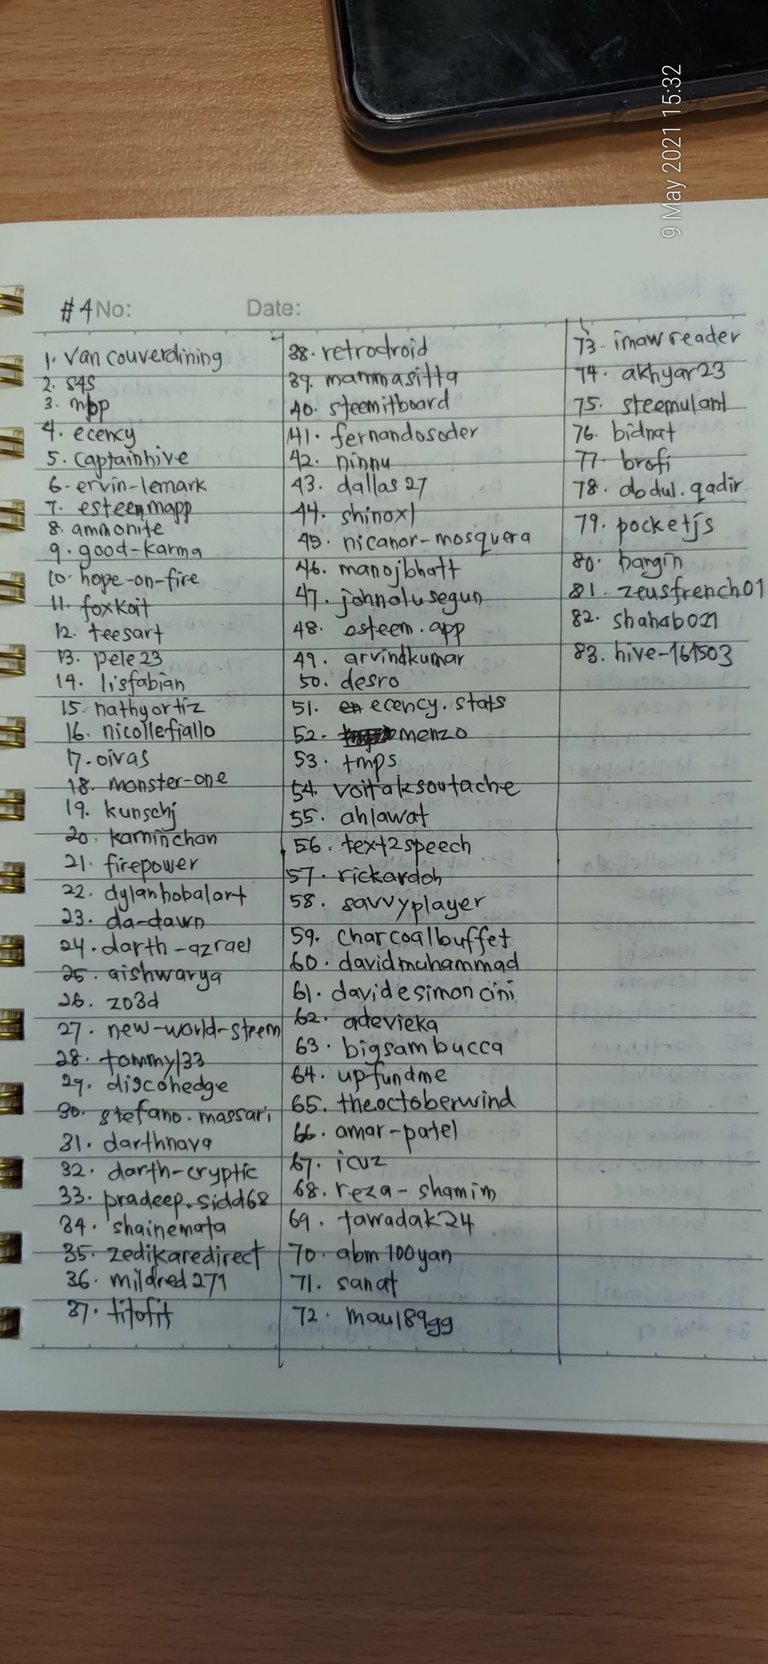 9 May 2021 15:32
#4 No: Date:
1. Vancouverdining
2. s4s
3. mpp
4. ecency
5. captainhive
6. ervin-lemark
7. esteemapp
8. ammonite
9. good-karma
10. hope-on-fire
11. foxkoit
12. teesart
13. pele23
14. lisfabian
15. nathyortiz
16. nicollefiallo
17. oivas
18. monster-one
19. kunschj
20. kaminchan
21. firepower
22. dylanhobalart
23. da-dawn
24. darth-azrael
25. aishwarya
26. zo3d
27. new-world-steem
28. tommyl33
29. discohedge
30. stefano.massari
31. darthnava
32. darth-cryptic
33. pradeep.sidd68
34. shainemata
35. zedikaredirect
36. mildred271
37. titofit
38. retrodroid
39. mammasitta
40. steemitboard
41. fernandosoder
42. ninnu
43. dallas27
44. shinoxl
45. nicanor-mosquera
46. manojbhatt
47. johnolusegun
48. esteem.app
49. arvindkumar
50. desro
51. ecency.stats
52. menzo
53. tmps
54. voitaksoutache
55. ahlawat
56. text2speech
57. rickardoh
58. savvyplayer
59. charcoalbuffet
60. davidmuhammad
61. davidesimoncini
62. adevieka
63. bigsambucca
64. upfundme
65. theoctoberwind
66. amar-patel
67. icuz
68. reza-shamim
69. tawadak24
70. abm100yan
71. sanat
72. maul89gg
73. imawreader
74. akhyar23
75. steemulant
76. bidnat
77. brofi
78. abdul.qadir
79. pocketjs
80. hangin
81. zeusfrench01
82. shahab021
83. hive-161503